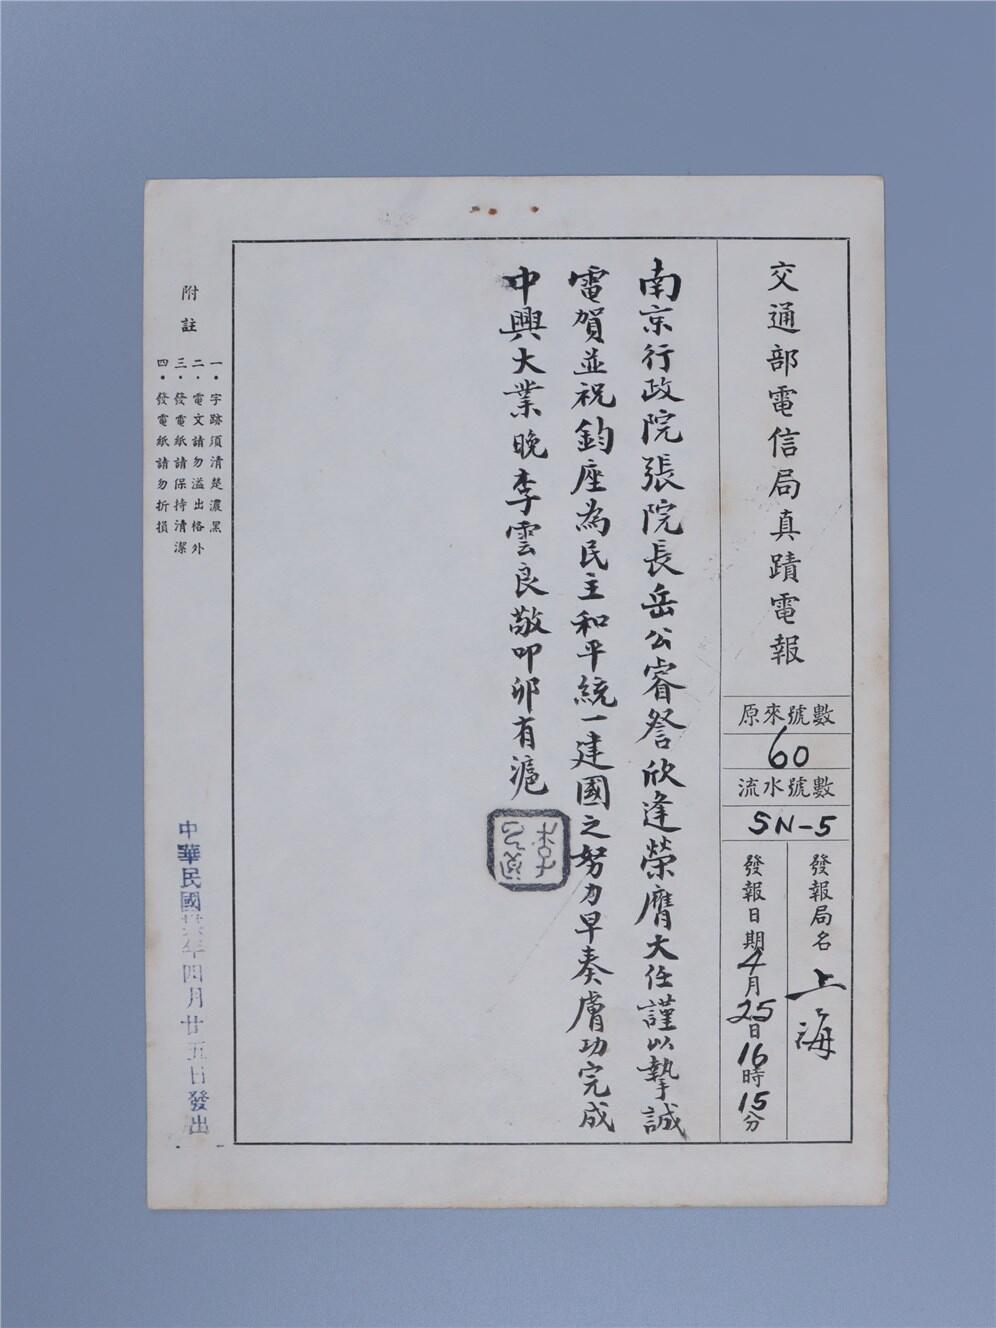 交通部電信局真蹟電報
原來號數
60
流水號數
SN-5
發報局名 上海
發報日期 4月25日16時15分
南京行政院張院長岳公睿詧欣逢榮膺大任謹以摯誠
電賀並祝鈞座為民主和平統一建國之努力早奏膚功完成
中興大業晚李雲良敬叩卯有滬
附註
一・字跡須清楚濃黑
二・電文請勿溢出格外
三・發電紙請保持清潔
四・發電紙請勿折損
中華民國卅六年四月廿五日發出